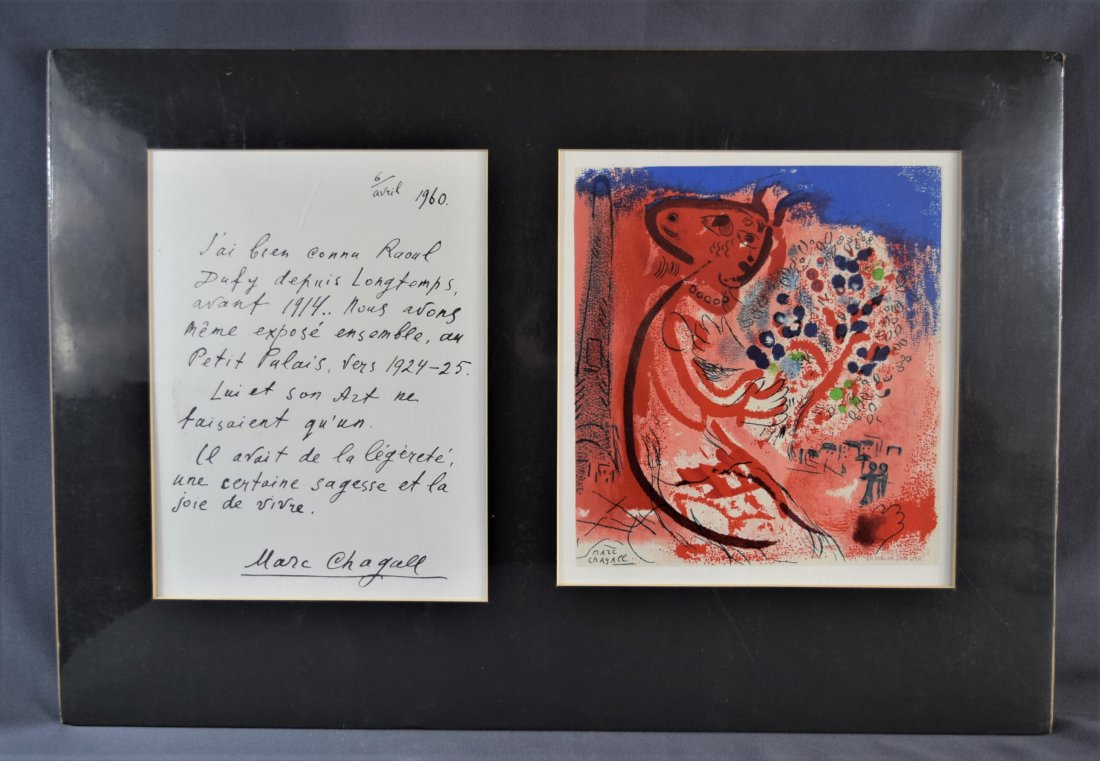 6/avril 1960.
J'ai bien connu Raoul
Dufy depuis Longtemps,
avant 1914.. Nous avons
même exposé ensemble, au
Petit Palais, vers 1924-25.
Lui et son Art ne
faisaient qu'un.
Il avait de la légèreté,
une certaine sagesse et la
joie de vivre.
Marc Chagall
MARC
CHAGALL